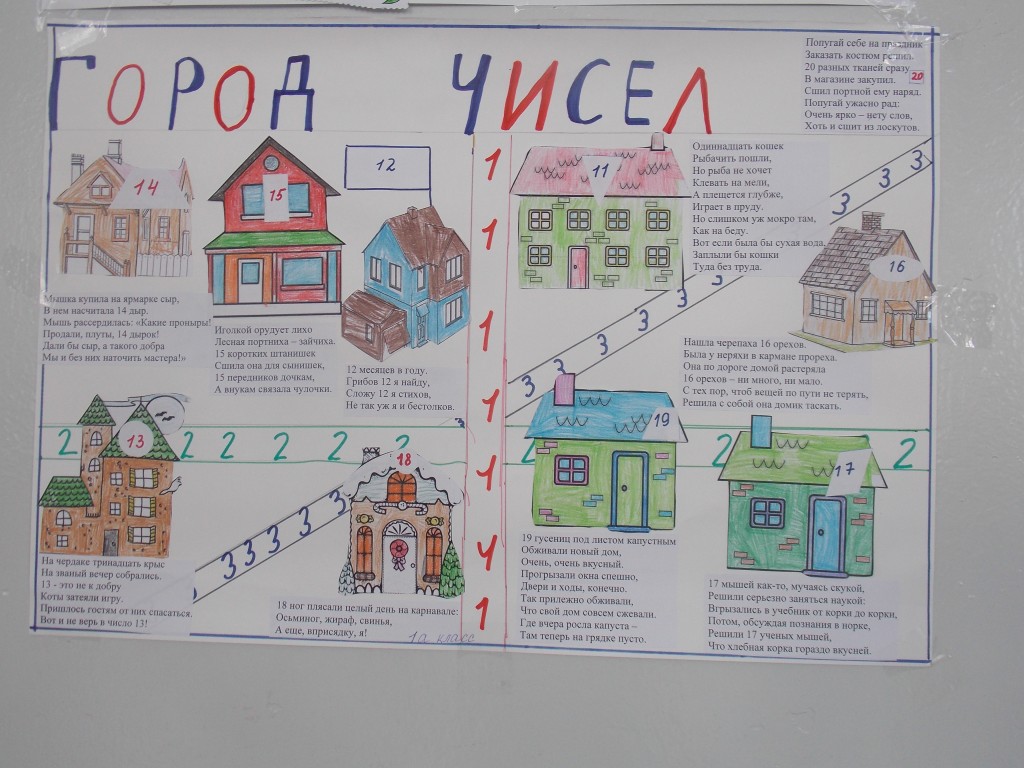 ГОРОД ЧИСЕЛ
Попугай себе на праздник
Заказать костюм решил.
20 разных тканей сразу
В магазине закупил.
Сшил портной ему наряд.
Попугай ужасно рад:
Очень ярко – нету слов,
Хоть и сшит из лоскутов.
20
14
Мышка купила на ярмарке сыр,
В нем насчитала 14 дыр.
Мышь рассердилась: «Какие проныры!
Продали, плуты, 14 дырок!
Дали бы сыр, а такого добра
Мы и без них наточить мастера!»
15
Иголкой орудует лихо
Лесная портниха – зайчиха.
15 коротких штанишек
Сшила она для сынишек,
15 передников дочкам,
А внукам связала чулочки.
12
12 месяцев в году.
Грибов 12 я найду,
Сложу 12 я стихов,
Не так уж я и бестолков.
11
Одиннадцать кошек
Рыбачить пошли,
Но рыба не хочет
Клевать на мели,
А плещется глубже,
Играет в пруду.
Но слишком уж мокро там,
Как на беду.
Вот если была бы сухая вода,
Заплыли бы кошки
Туда без труда.
16
Нашла черепаха 16 орехов.
Была у неряхи в кармане прореха.
Она по дороге домой растеряла
16 орехов – ни много, ни мало.
С тех пор, чтоб вещей по пути не терять,
Решила с собой она домик таскать.
13
На чердаке тринадцать крыс
На званый вечер собрались.
13 - это не к добру
Коты затеяли игру.
Пришлось гостям от них спасаться.
Вот и не верь в число 13!
18
18 ног плясали целый день на карнавале:
Осьминог, жираф, свинья,
А еще, вприсядку, я!
19
19 гусениц под листом капустным
Обживали новый дом,
Очень, очень вкусный.
Прогрызали окна спешно,
Двери и ходы, конечно.
Так прилежно обживали,
Что свой дом совсем сжевали.
Где вчера росла капуста –
Там теперь на грядке пусто.
17
17 мышей как-то, мучаясь скукой,
Решили серьезно заняться наукой:
Вгрызались в учебник от корки до корки,
Потом, обсуждая познания в норке,
Решили 17 ученых мышей,
Что хлебная корка гораздо вкусней.
1
1
1
1
1
1
1
2 2 2 2 2 2 2 2 2
3 3 3 3 3 3 3 3 3 3
3 3 3 3 3
1а класс